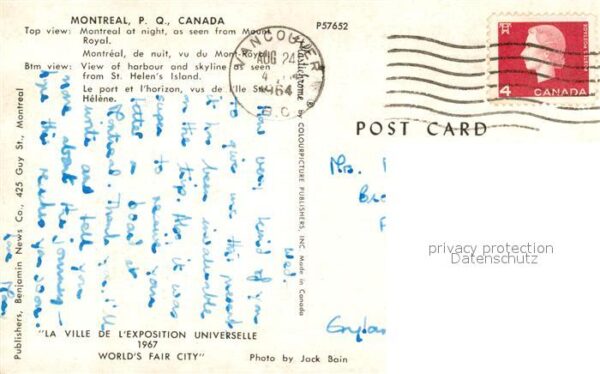 MONTREAL, P. Q., CANADA
Top view: Montreal at night, as seen from Mount
Royal.
Montréal, de nuit, vu du Mont-Royal.
Btm view: View of harbour and skyline as seen
from St. Helen's Island.
Le port et l'horizon, vus de l'Ile Ste-
Hélène.
P57652
VANCOUVER
AUG 24
1964
B.C.
4
CANADA
POST CARD
Plastichrome by COLOURPICTURE PUBLISHERS, INC Made in Canada
Publishers, Benjamin News Co., 425 Guy St., Montreal
Wed.
How very kind of you
to give us this present
It has been invaluable
on the trip. Also it was
super to receive your
letter on board at
Montreal. Thank you. I'll
write and tell you
more about the journey
hope this reaches you soon.
Love
Mrs.
England
privacy protection
Datenschutz
"LA VILLE DE L'EXPOSITION UNIVERSELLE
1967
WORLD'S FAIR CITY"
Photo by Jack Bain